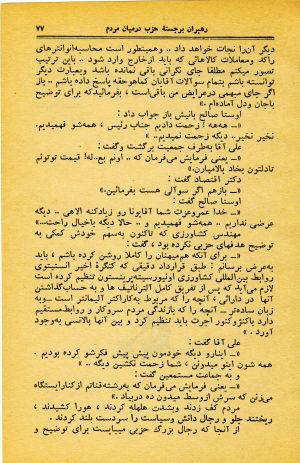 رهبران برجستهٔ حزب درمیان مردم ۷۷
دیگر آن‌را نجات خواهد داد .. وهمینطور است محاسبه‌انوانترهای
رأکد ومعاملات کالاهائی که باید ازخارج وارد شود .. بااین ترتیب
تصور میکنم مطلقاً جای نگرانی باقی نمانده باشد وبعبارت دیگر
توانسته باشم بتمام سوالات آقایان کماهوحقه پاسخ داده باشم .. باز
اگر جای مبهمی درعرایض من باقی‌است ، بفرمائیدکه برای توضیح
باجان ودل آماده‌ام .»
اوستا صالح بانیش باز جواب داد :
«ـ هه‌هه ! زحمت دادیم جناب رئیس ، همه‌شو فهمیدیم.
نخیر نخیر.. دیگه زحمت نمیدیم.. »
علی آقا به‌طرف جمعیت برگشت وگفت :
«ـ یعنی فرمایش می‌فرمان که .. اونم بع..له! قیمت توتونم
تادلتون بخاد بالامیارن.»
دکتر اقتصاد گفت :
«ـ بازهم اگر سوآلی هست بفرمائین.»
اوستا صالح گفت :
«ـ خدا عمروعزت شما آقایونا رو زیادکنه الاهی .. دیگه
عرضی نداریم .. همه‌شو فهمیدیم و .. حالا دیگه باخیال راحت...»
مهندس کشاورزی که تاکنون به‌سهم خودش کمکی به
توضیح هدفهای حزبی نکرده بود ، گفت :
«ـ برای آنکه هم‌میهنان را کاملاً روشن کرده باشم ، باید
به‌عرض برسانم : طبق قرارداد دقیقی که کنگرهٔ اخیر انستیتوی
روابط بین‌المللی کشاورزی اونیورسیته‌پرینستون تنظیم کرده است
لازم می‌آید که پس از تفریق کامل آلترناتیف ها و به حساب‌گذاشتن
آنها در دارائی ، آنچه را که مربوط به‌کاراکتر آلیمانتر است ـ به
زبان ساده‌تر ـ آنچه را که بازندگی مردم سروکار و روابط‌مستقیم
دارد باکنژوکتور اجرت باید تنظیم کرد و بین آنها بالانسی بوجود
آورد . »
علی آقا گفت :
«ـ اینارو دیگه خودمون پیش پیش فکرشو کرده بودیم .
همه شون اینو میدونن ، شما زحمت نکشین دیگه .. »
و به جماعت مستمعین گفت :
«ـ یعنی فرمایش می‌فرمان که به‌رشنه‌قناتم ازکنارایستگاه
می‌زنن که سرش ازوسط میدون ده دربیاد.»
مردم کف زدند وبشدت هلهله کردند ، هورا کشیدند ،
ریختند جلو و رجال دانش وسیاست را سردست بلند کردند .
از آنجا که رجال بزرگ حزبی میبایست برای توضیح و